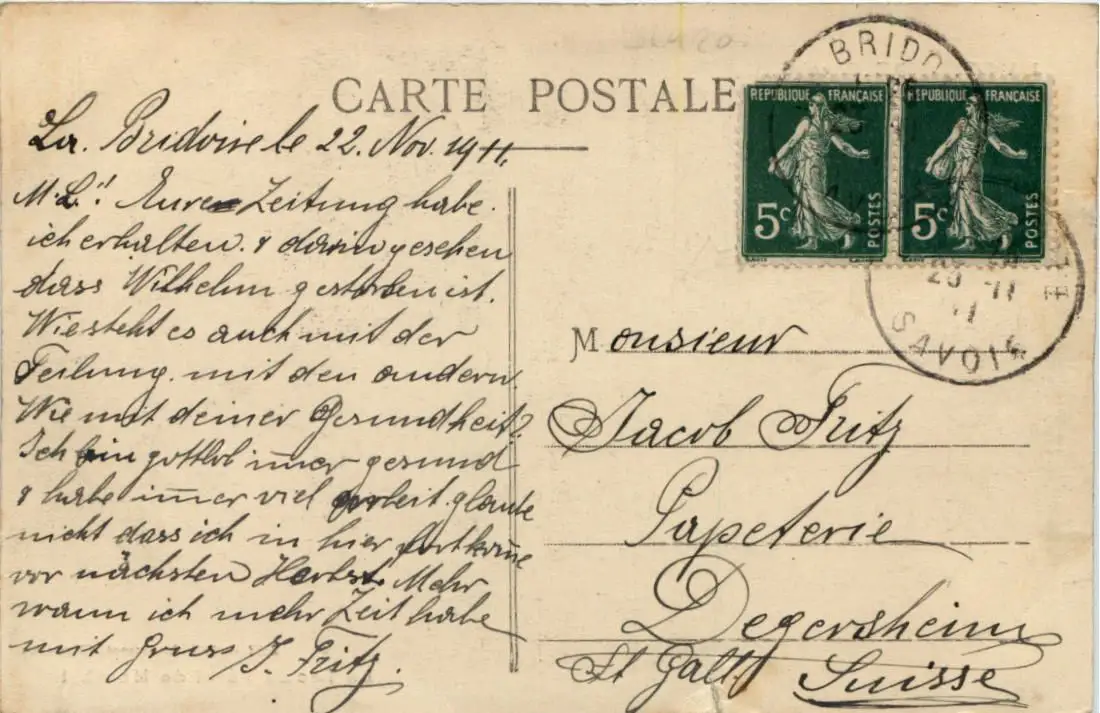 CARTE POSTALE
La. Bridoire le 22. Nov. 1911.
M. L.!! Eure Zeitung habe.
ich erhalten. & darin gesehen
dass Wilhelm gestorben ist.
Wie steht es auch mit der
Teilung. mit den andern.
Wie mit deiner Gesundheit?
Ich bin gottlob im̅er gesund
& habe im̅er viel arbeit. glaube
nicht dass ich in hier fortkom̅e
vor nächsten Herbst. Mehr
wann ich mehr Zeit habe
mit Gruss J. Fritz.
REPUBLIQUE FRANÇAISE
5c
POSTES
REPUBLIQUE FRANÇAISE
5c
POSTES
BRIDO
23 -11
11
SAVOIE
Monsieur
Jacob Fritz
Papeterie
Degersheim
St Gall.
Suisse